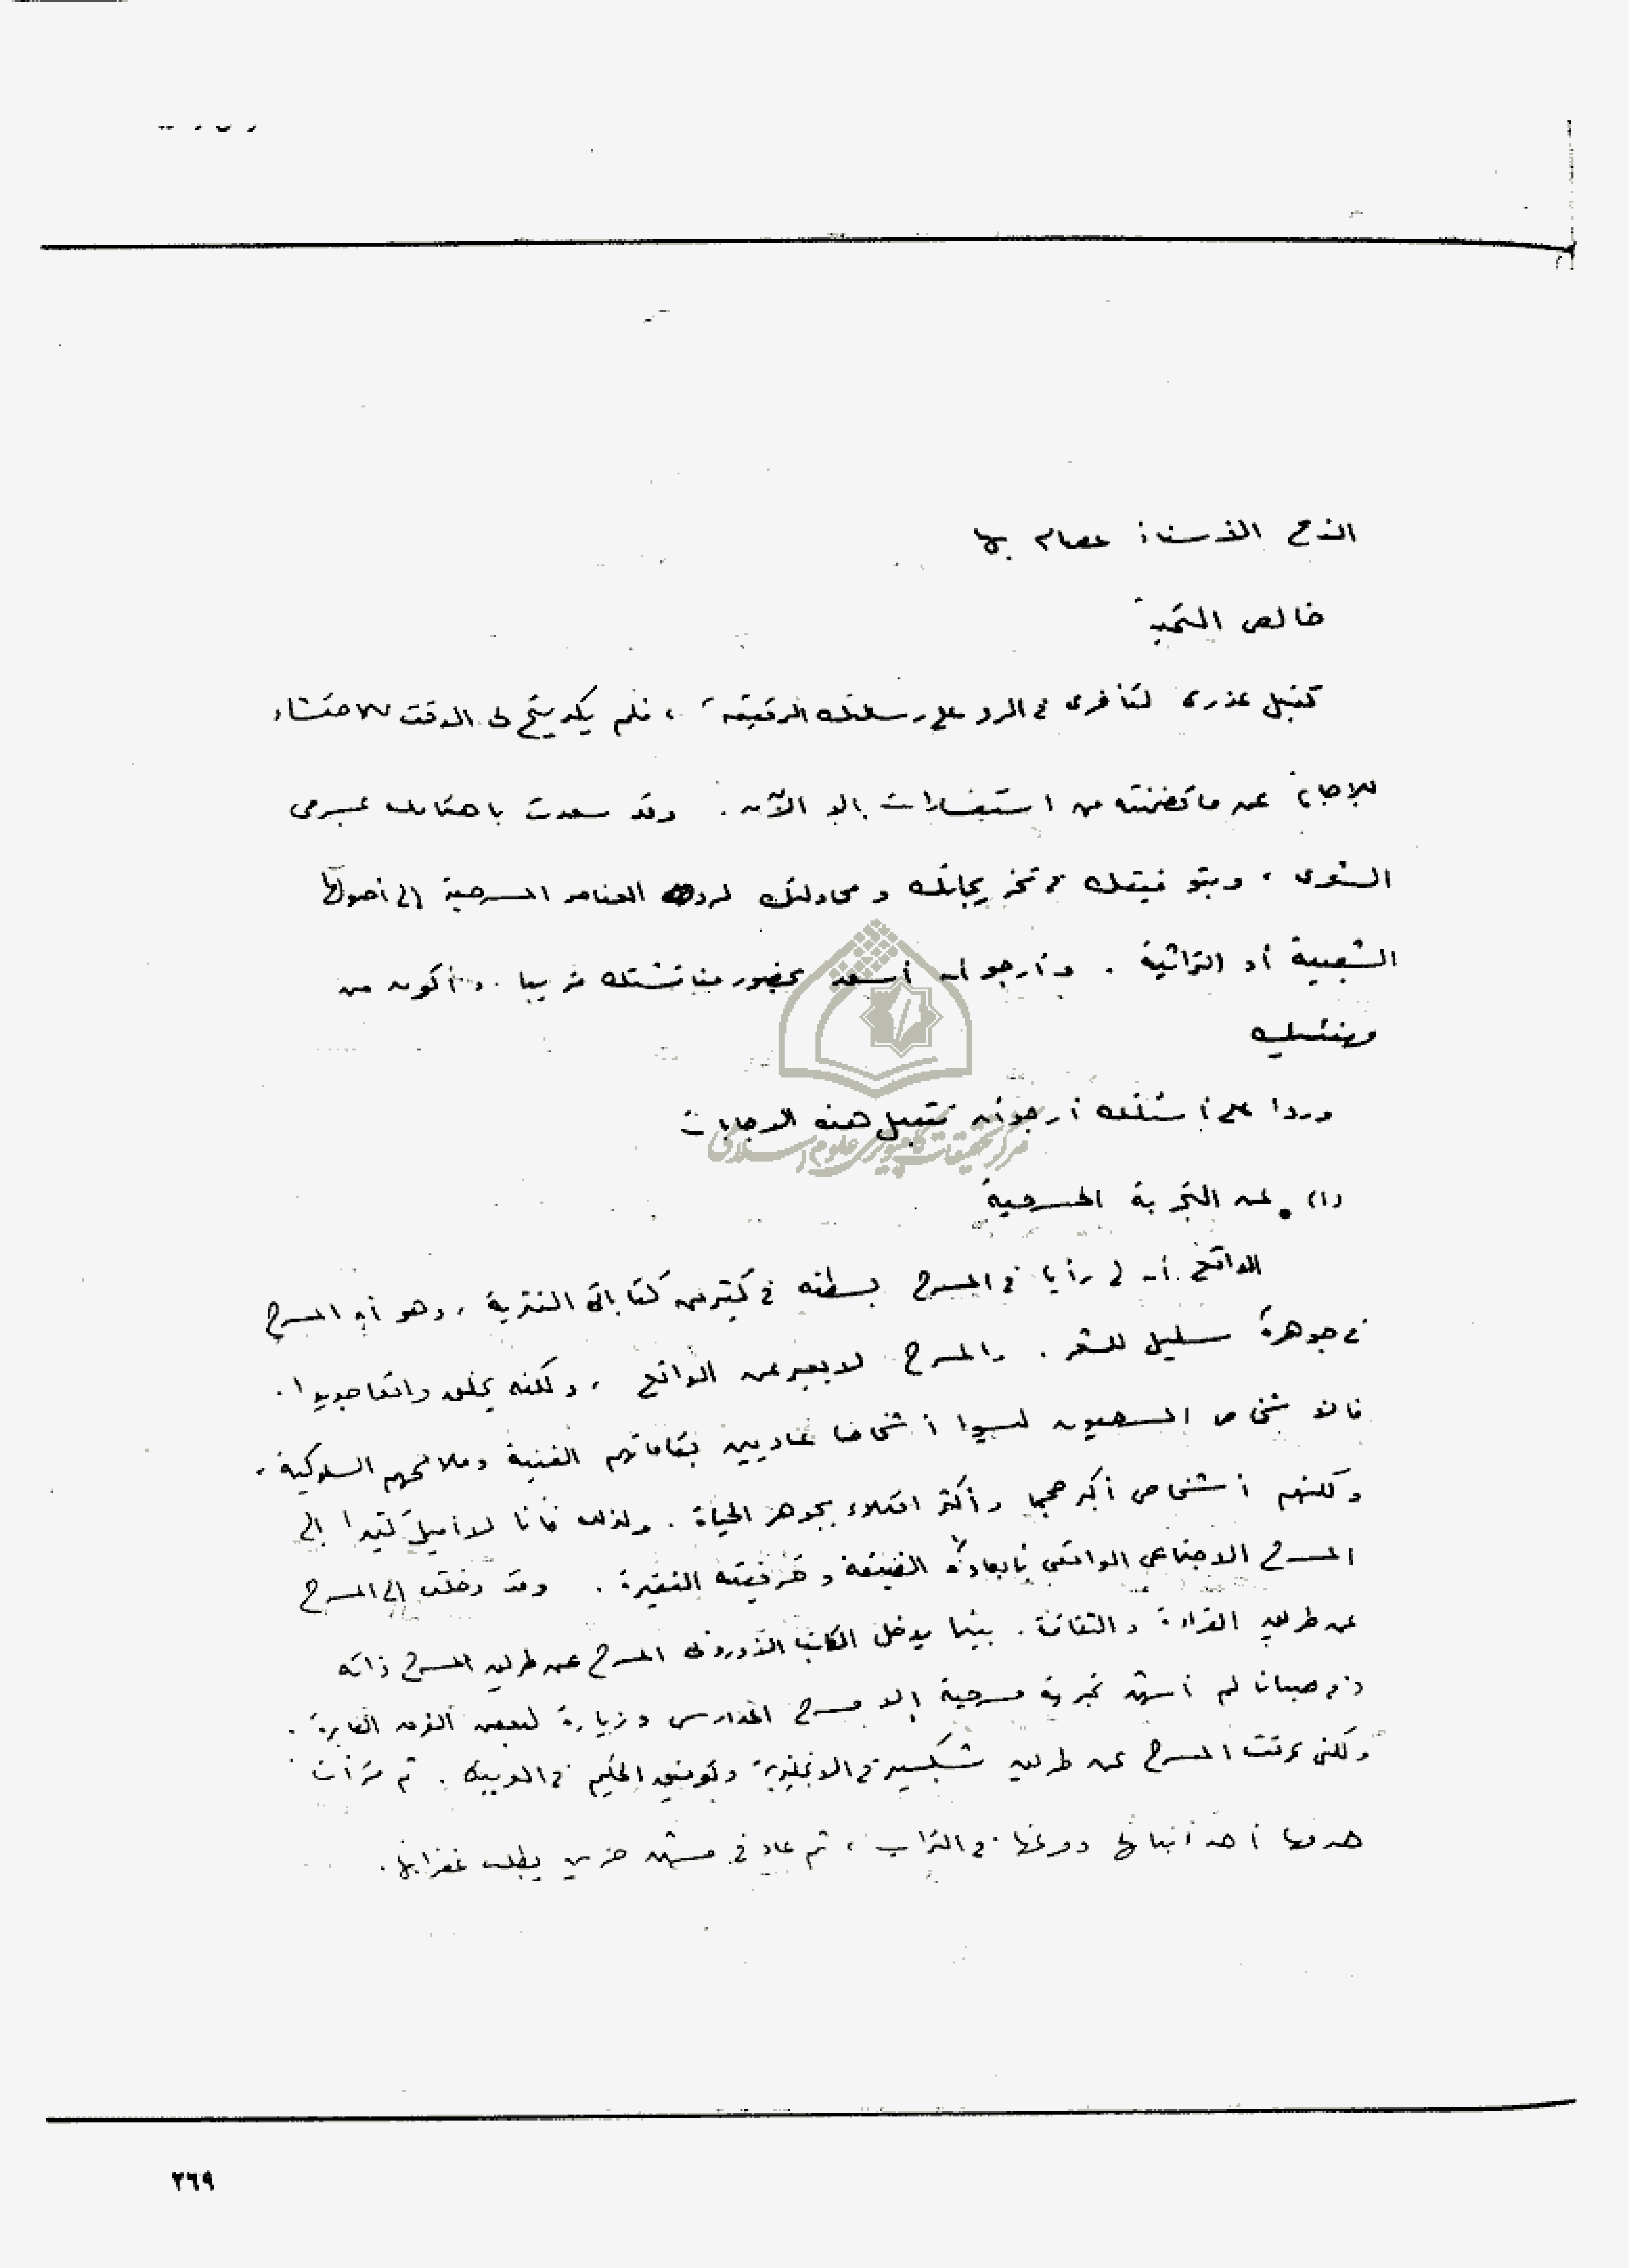 الأخ الأستاذ عصام بهى
خالص التحية
تقبل عذرى لتأخرى فى الرد على رسالتك الرقيقة ، فلم يكد يتح لى الوقت
للإجابة عن ما تضمنته من استفسارات إلا الآن . وقد سعدت باهتمامك بمسرحى
الشعرى ، وبتوفيقك فى تخريجاتك ومحاولتك لرد العناصر المسرحية إلى أصولها
الشعبية أو التراثية . وأرجو أن أسعد بحضور مناقشتك قريبا . وأكون من
مهنئيك
وردا على أسئلتك أرجو أن تتقبل هذه الإجابات
مركز تحقيقات كامپيوترى علوم اسلامى
(١) عن التجربة المسرحية
الواقع أن لى رأيا فى المسرح بسطته فى كثير من كتاباتى النثرية ، وهو أن المسرح
فى جوهره سليل للشعر . والمسرح لا يعبر عن الواقع ، ولكنه يخلق واقعا جديدا .
فالأشخاص المسرحيون ليسوا أشخاصا عاديين بقاماتهم الفنية وملامحهم السلوكية ،
ولكنهم أشخاص أكبر حجما وأكثر امتلاء بجوهر الحياة . ولذلك فأنا لا أميل كثيرا إلى
المسرح الاجتماعى الواقعى بأبعاده الضيقة وحرفيته الفقيرة . وقد دخلت إلى المسرح
عن طريق القراءة والثقافة . بينما يدخل الكاتب الأوروبى المسرح عن طريق المسرح ذاته
فى صباى لم أشهد تجربة مسرحية إلا مسرح المدارس وزيارة لبعض الفرق العابرة .
ولكنى عرفت المسرح عن طريق شكسبير فى الانجليزية وتوفيق الحكيم فى العربية . ثم قرأت
هدمها أحد أتباعها ومرغها فى التراب ، ثم عاد فى مشهد يطلب غفرانها .
٢٦٩